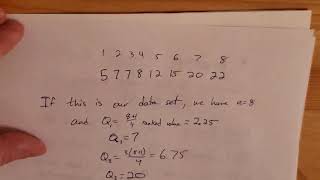 1 2 3 4 5 6 7 8
5 7 7 8 12 15 20 22
If this is our data set, we have n=8
and Q₁ = (8+1)/4 ranked value = 2.25
Q₁ = 7
Q₃ = 3(8+1)/4 = 6.75
Q₃ = 20